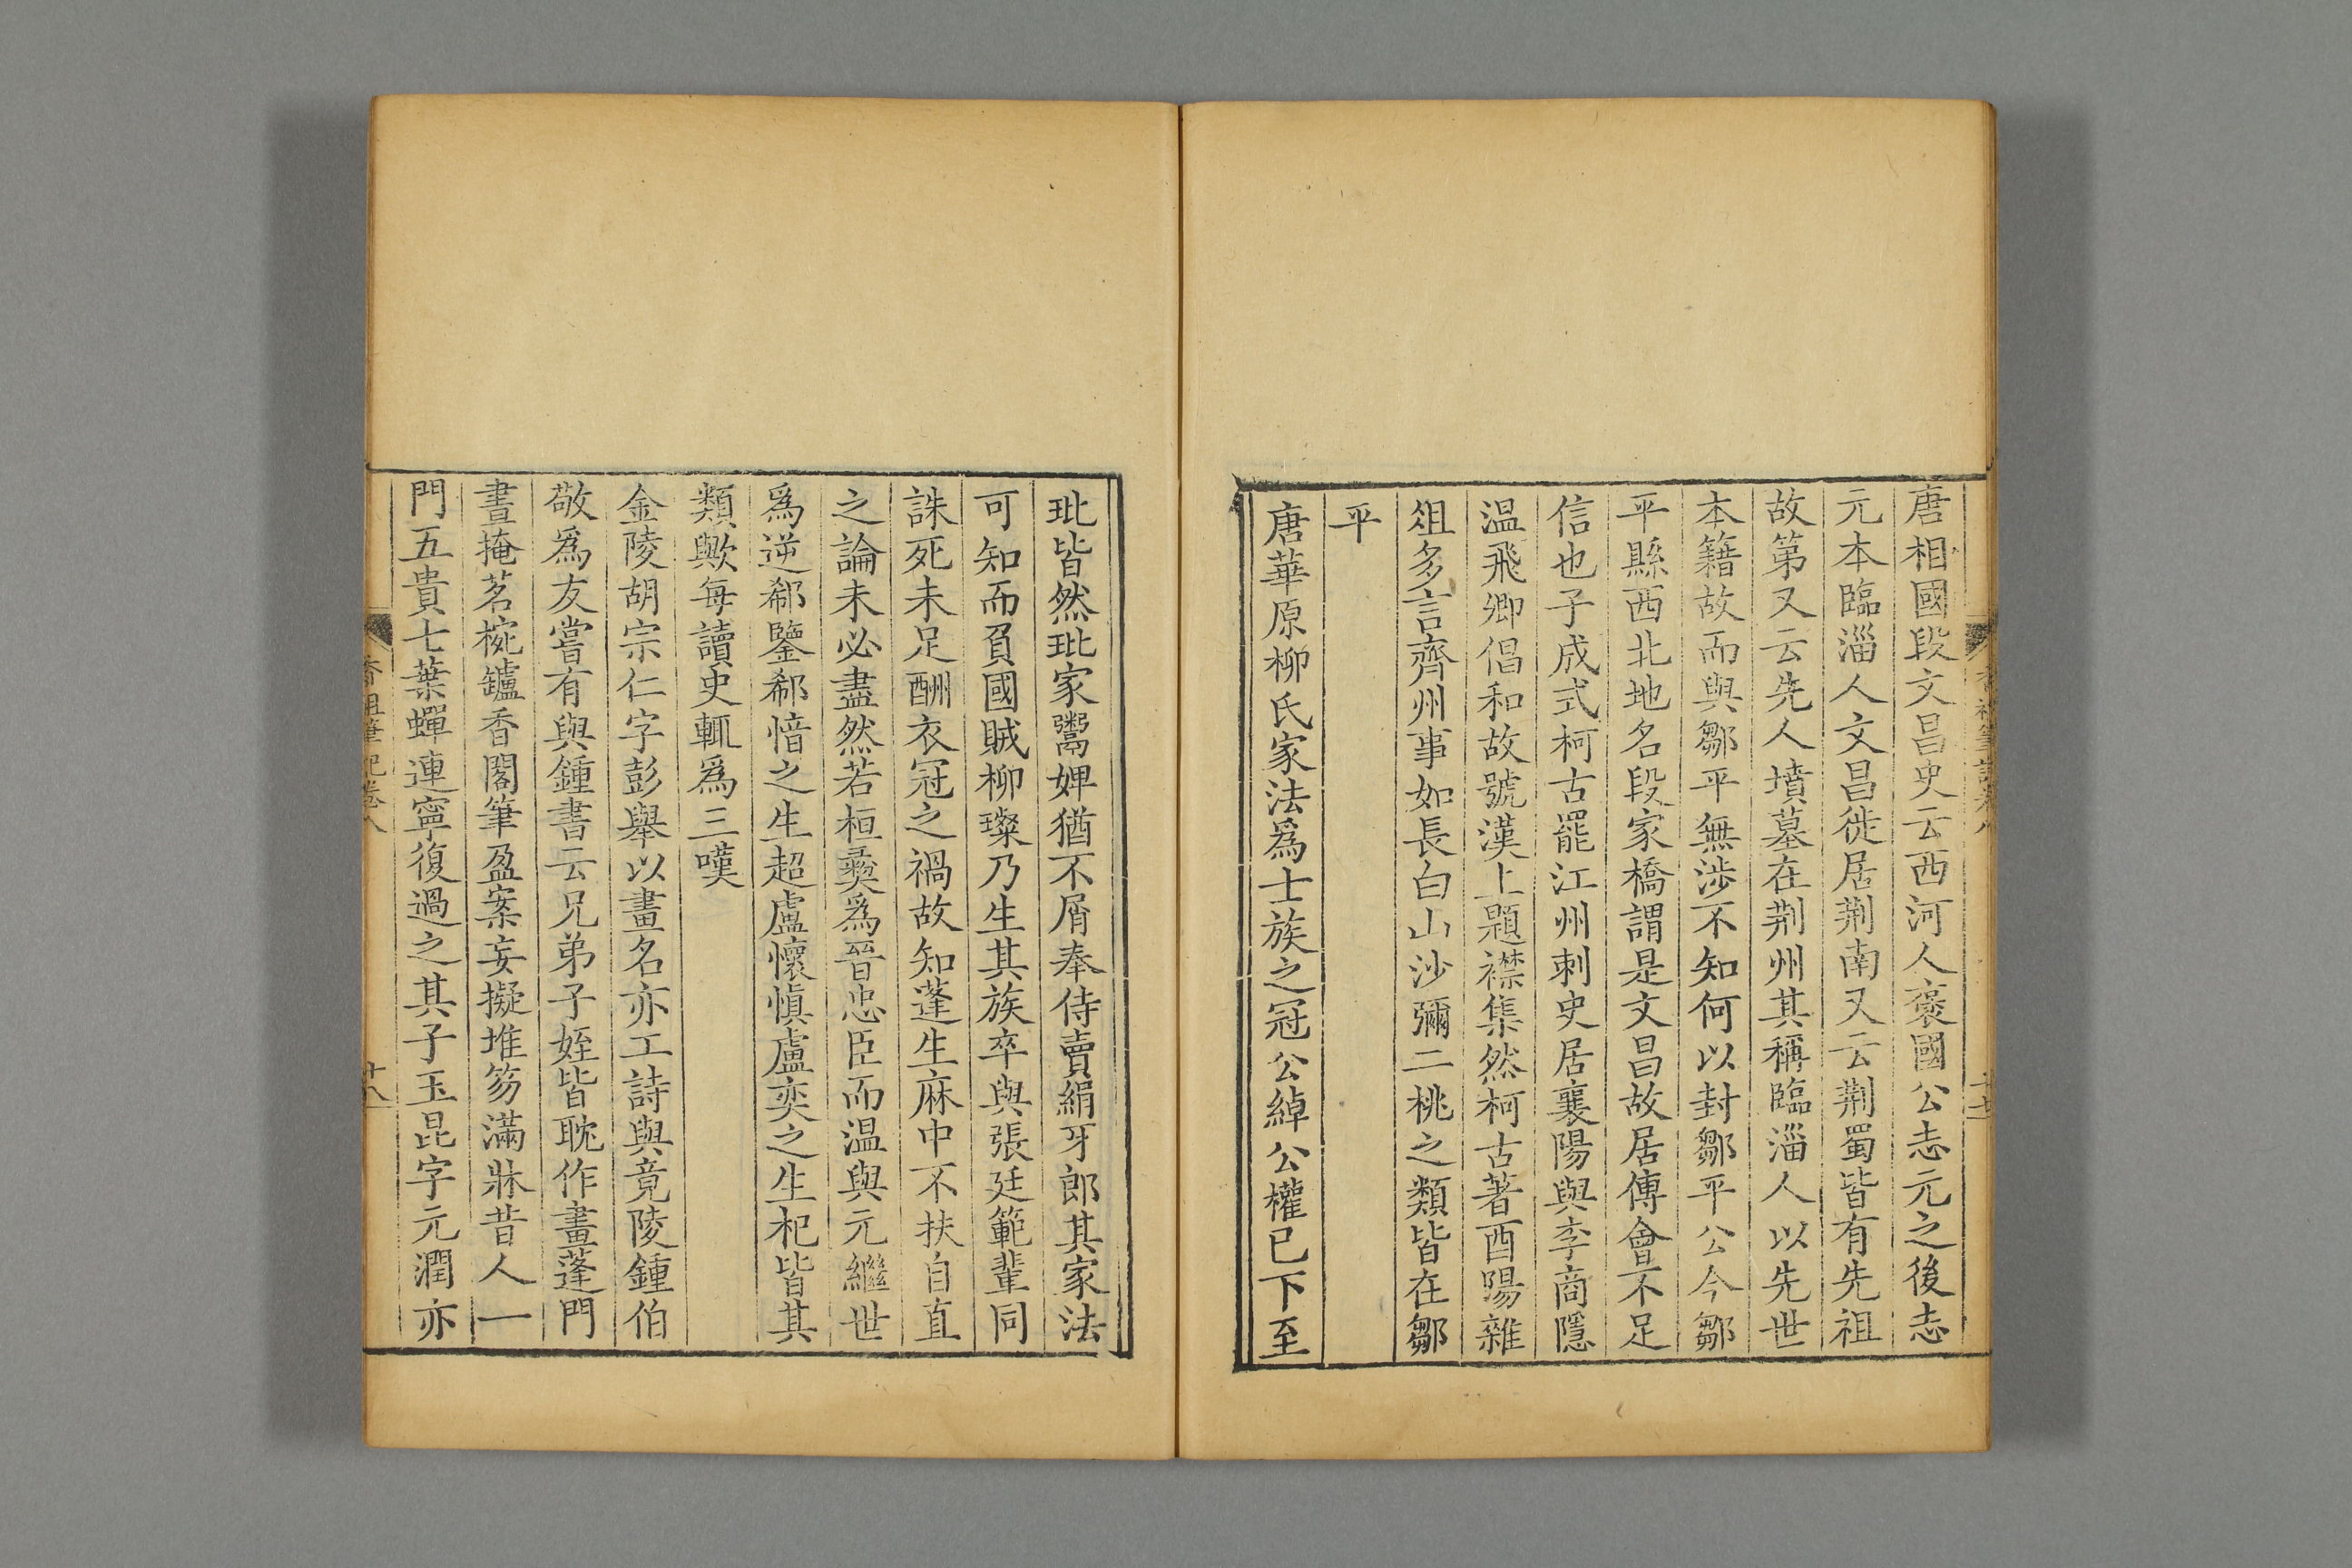 唐相國段文昌史云西河人褒國公志元之後志
元本臨淄人文昌徙居荆南又云荆蜀皆有先祖
故第又云先人墳墓在荆州其稱臨淄人以先世
本籍故而與鄒平無涉不知何以封鄒平公今鄒
平縣西北地名段家橋謂是文昌故居傳會不足
信也子成式柯古罷江州刺史居襄陽與李商隱
温飛卿倡和故號漢上題襟集然柯古著酉陽雜
俎多言齊州事如長白山沙彌二桃之類皆在鄒
平
唐華原柳氏家法爲士族之冠公綽公權已下至
玭皆然玭家鬻婢猶不屑奉侍賣絹牙郎其家法
可知而負國賊柳璨乃生其族卒與張廷範輩同
誅死未足酬衣冠之禍故知蓬生麻中不扶自直
之論未必盡然若桓彝爲晉忠臣而温與元繼世
爲逆郗鑒郗愔之生超盧懷愼盧奕之生杞皆其
類歟每讀史輒爲三嘆
金陵胡宗仁字彭舉以畫名亦工詩與竟陵鍾伯
敬爲友嘗有與鍾書云兄弟子姪皆耽作畫蓬門
晝掩茗椀鑪香閣筆盈案妄擬堆笏滿牀昔人一
門五貴七葉蟬連寧復過之其子玉昆字元潤亦
香祖筆記卷八
十八